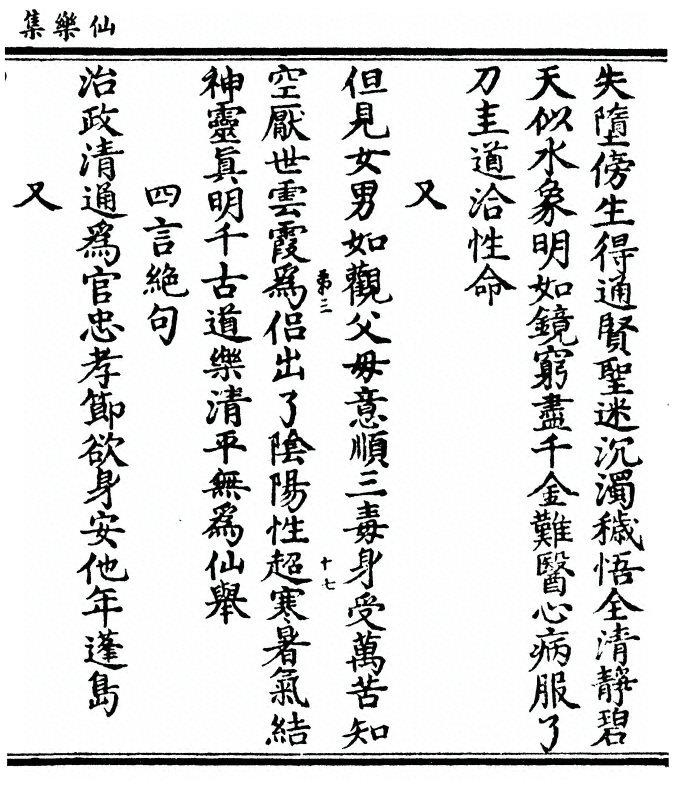 仙樂集
失墮傍生得通賢聖迷沉濁穢悟全清靜碧
天似水象明如鏡窮盡千金難醫心病服了
刀圭道洽性命
又
但見女男如觀父母意順三毒身受萬苦知
第三
十七
空厭世雲霞爲侣出了陰陽性超寒暑氣結
神靈眞明千古道樂清平無爲仙舉
四言絶句
治政清通爲官忠孝節欲身安他年蓬島
又